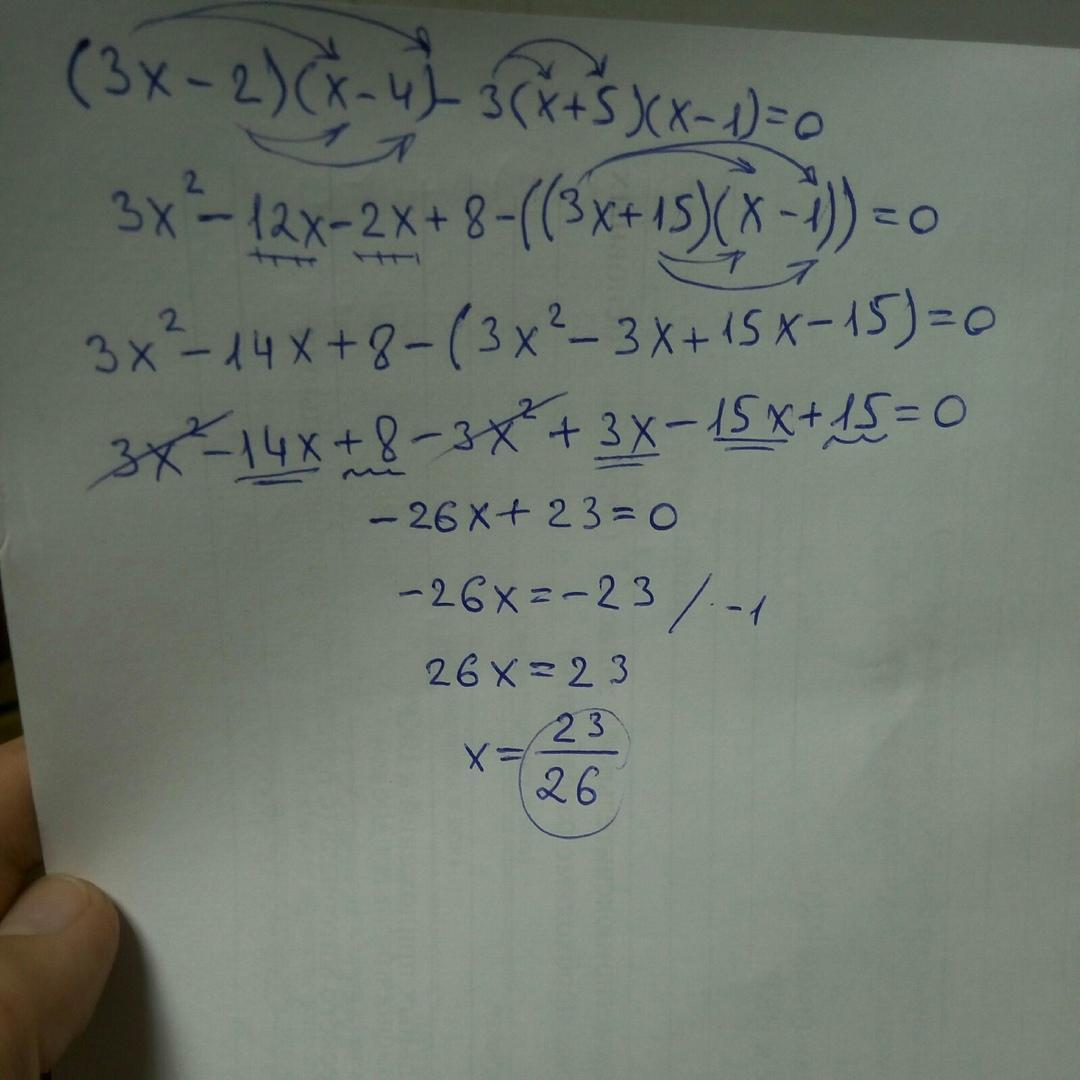 (3x-2)(x-4)-3(x+5)(x-1)=0
3x²-12x-2x+8-((3x+15)(x-1))=0
3x²-14x+8-(3x²-3x+15x-15)=0
3x²-14x+8-3x²+3x-15x+15=0
-26x+23=0
-26x=-23 /·-1
26x=23
x=23/26